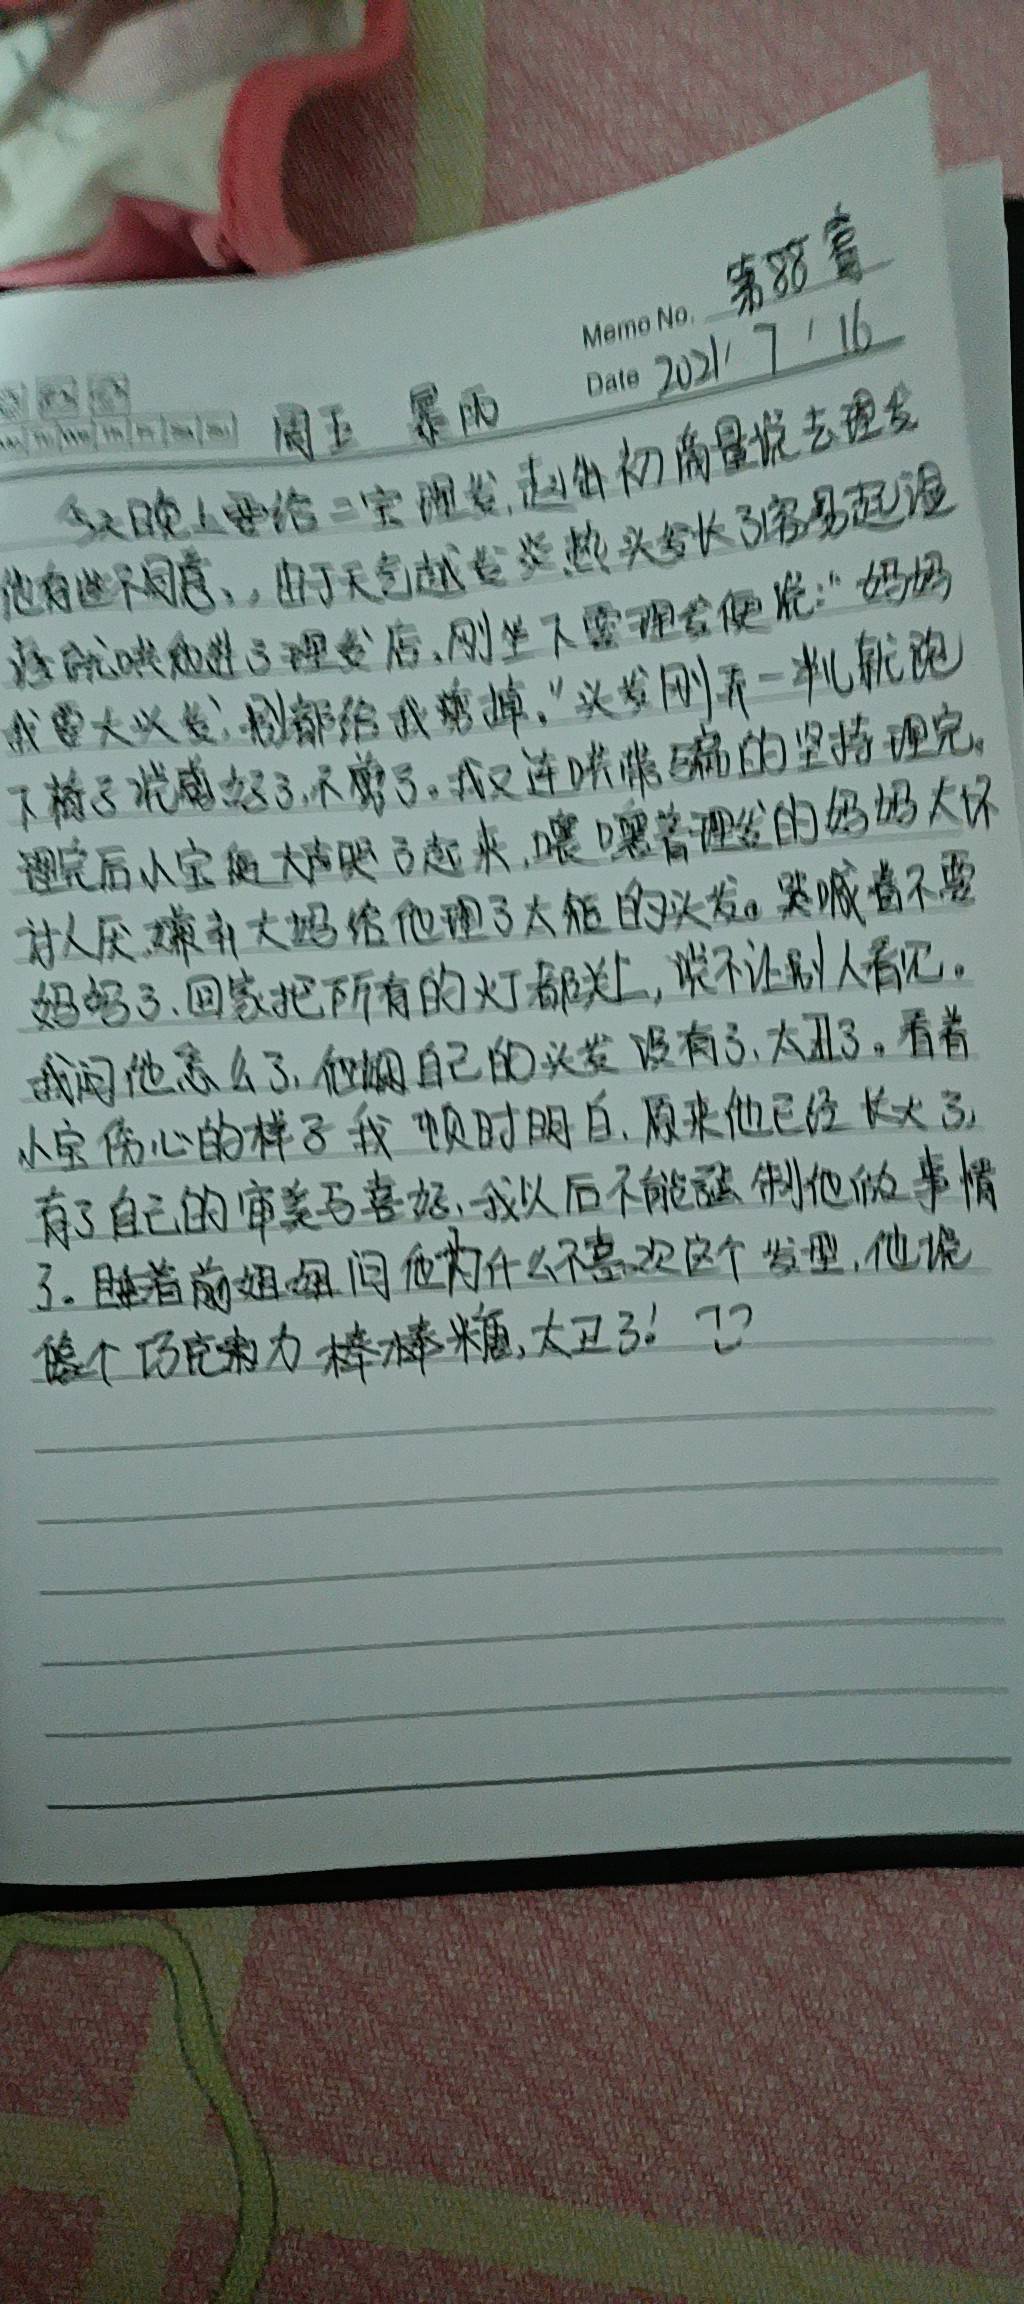 Memo No. 第88篇
Date 2021 / 7 / 16
周五 暴雨
今天晚上要给二宝理发,起初商量说去理发
他有些不同意、,由于天气越发炎热头发长了容易起湿
疹就哄他进了理发店,刚坐下要理发便说:“妈妈
我要大头发,别都给我剪掉。”头发刚弄一半儿就跑
下椅子说剪好了,不剪了。我又连哄带骗的坚持理完。
理完后小宝便大声哭了起来,嚷嚷着理发的妈妈太坏
讨人厌,大妈给他理了太短的头发。哭喊着不要
妈妈了,回家把所有的灯都关上,说不让别人看见。
我问他怎么了,他嫌自己的头发没有了,太丑了。看着
小宝伤心的样子我顿时明白,原来他已经长大了,
有了自己的审美与喜好,我以后不能强制他做事情
了。睡着前姐姐问他为什么不喜欢这个发型,他说
像个巧克力棒棒糖,太丑了!